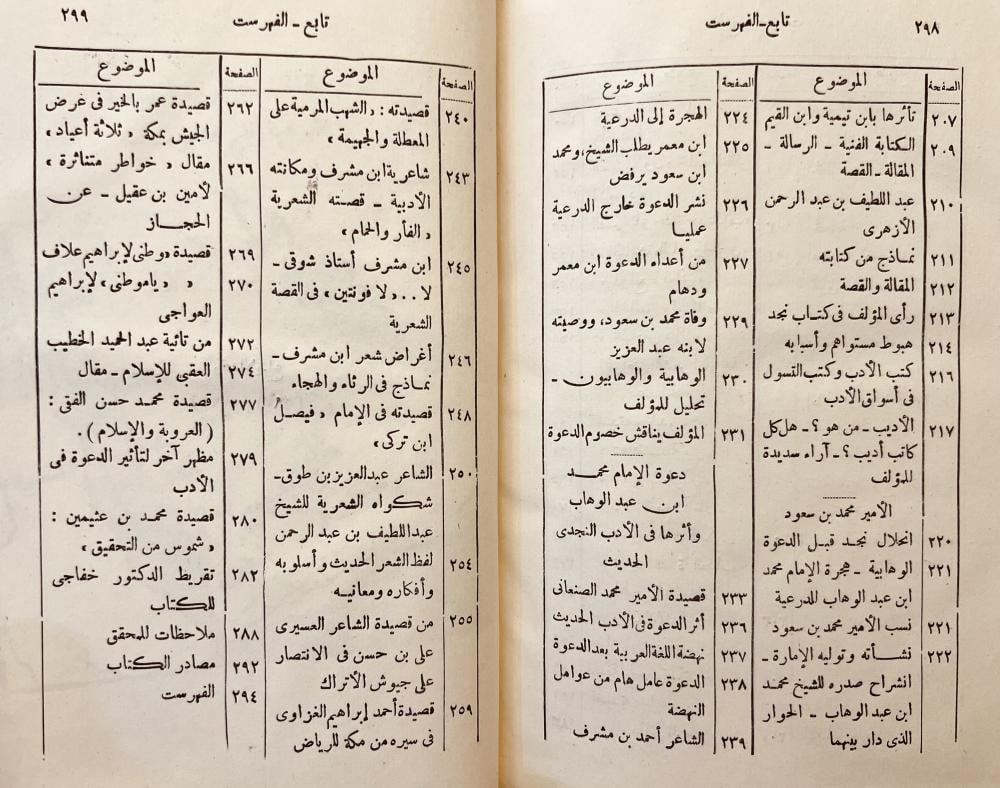 ٢٩٨
تابع ــ الفهرست
الصفحة
الموضوع
٢٠٧ تأثرها بابن تيمية وابن القيم
٢٠٩ الكتابة الفنية ــ الرسالة ــ
المقالة ــ القصة
٢١٠ عبد اللطيف بن عبد الرحمن
الأزهرى
٢١١ نماذج من كتابته
٢١٢ المقالة والقصة
٢١٣ رأى المؤلف فى كتاب نجد
٢١٤ هبوط مستواهم وأسبابه
٢١٦ كتب الأدب وكتب التسول
فى أسواق الأدب
٢١٧ الأديب ــ من هو ؟ ــ هل كل
كاتب أديب ؟ ــ آراء سديدة
للمؤلف
الأمير محمد بن سعود
٢٢٠ انحلال نجد قبل الدعوة
٢٢١ الوهابية ــ هجرة الإمام محمد
ابن عبد الوهاب للدرعية
٢٢١ نسب الأمير محمد بن سعود
٢٢٢ نشأته وتوليه الإمارة ــ
انشراح صدره للشيخ محمد
ابن عبد الوهاب ــ الحوار
الذى دار بينهما
الصفحة
الموضوع
٢٢٤ الهجرة إلى الدرعية
٢٢٥ ابن معمر يطلب الشيخ، ومحمد
ابن سعود يرفض
٢٢٦ نشر الدعوة خارج الدرعية
عمليا
٢٢٧ من أعداء الدعوة ابن معمر
ودهام
٢٢٩ وفاة محمد بن سعود، ووصيته
لابنه عبد العزيز
٢٣٠ الوهابية والوهابيون ــ
تحليل للمؤلف
٢٣١ المؤلف يناقش خصوم الدعوة
دعوة الإمام محمد
ابن عبد الوهاب
وأثرها فى الأدب النجدى
الحديث
٢٣٣ قصيدة الأمير محمد الصنعانى
٢٣٦ أثر الدعوة فى الأدب الحديث
٢٣٧ نهضة اللغة العربية بعد الدعوة
٢٣٨ الدعوة عامل هام من عوامل
النهضة
٢٣٩ الشاعر أحمد بن مشرف
تابع ــ الفهرست
٢٩٩
الصفحة
الموضوع
٢٤٠ قصيدته : « الشهب المرمية على
المعطلة والجهيمة »
٢٤٣ شاعرية ابن مشرف ومكانته
الأدبية ــ قصته الشعرية
« الفأر والحمام »
٢٤٥ ابن مشرف أستاذ شوقى ــ
لا . . « لا فونتين » فى القصة
الشعرية
٢٤٦ أغراض شعر ابن مشرف ــ
نماذج فى الرثاء والهجاء
٢٤٨ قصيدته فى الإمام « فيصل
ابن تركى »
٢٥٠ الشاعر عبد العزيز بن طوق ــ
شكواه الشعرية للشيخ
عبد اللطيف بن عبد الرحمن
٢٥٤ لفظ الشعر الحديث وأسلوبه
وأفكاره ومعانيه
٢٥٥ من قصيدة الشاعر العسيرى
على بن حسن فى الانتصار
على جيوش الأتراك
٢٥٩ قصيدة أحمد إبراهيم الغزاوى
فى سيره من مكة للرياض
الصفحة
الموضوع
٢٦٢ قصيدة عمر بالخير فى عرض
الجيش بمكة « ثلاثة أعياد »
٢٦٦ مقال « خواطر متناثرة »
لأمين بن عقيل ــ عن
الحجاز
٢٦٩ قصيدة « وطنى لإبراهيم علاف
٢٧٠ « « ياموطنى » لإبراهيم
العواجى
٢٧٢ من تائية عبد الحميد الخطيب
٢٧٤ العقبي للإسلام ــ مقال
٢٧٧ قصيدة محمد حسن الفقى :
( العروبة والإسلام ) .
٢٧٩ مظهر آخر لتأثير الدعوة فى
الأدب
٢٨٠ قصيدة محمد بن عثيمين :
« شموس من التحقيق »
٢٨٢ تقريط الدكتور خفاجى
للكتاب
٢٨٨ ملاحظات للمحقق
٢٩٢ مصادر الكتاب
٢٩٤ الفهرست